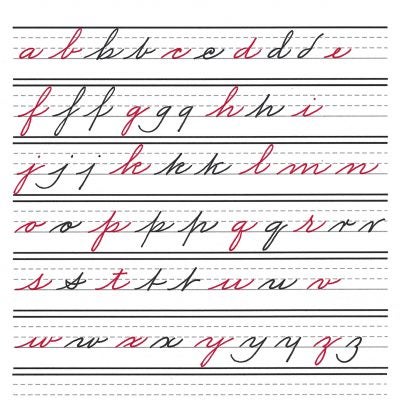 a b b b c c d d d e
f f f g g g h h i
j j j k k k l m n
o o p p p q q r r r
s s t t t u u v
w w x x y y y z z